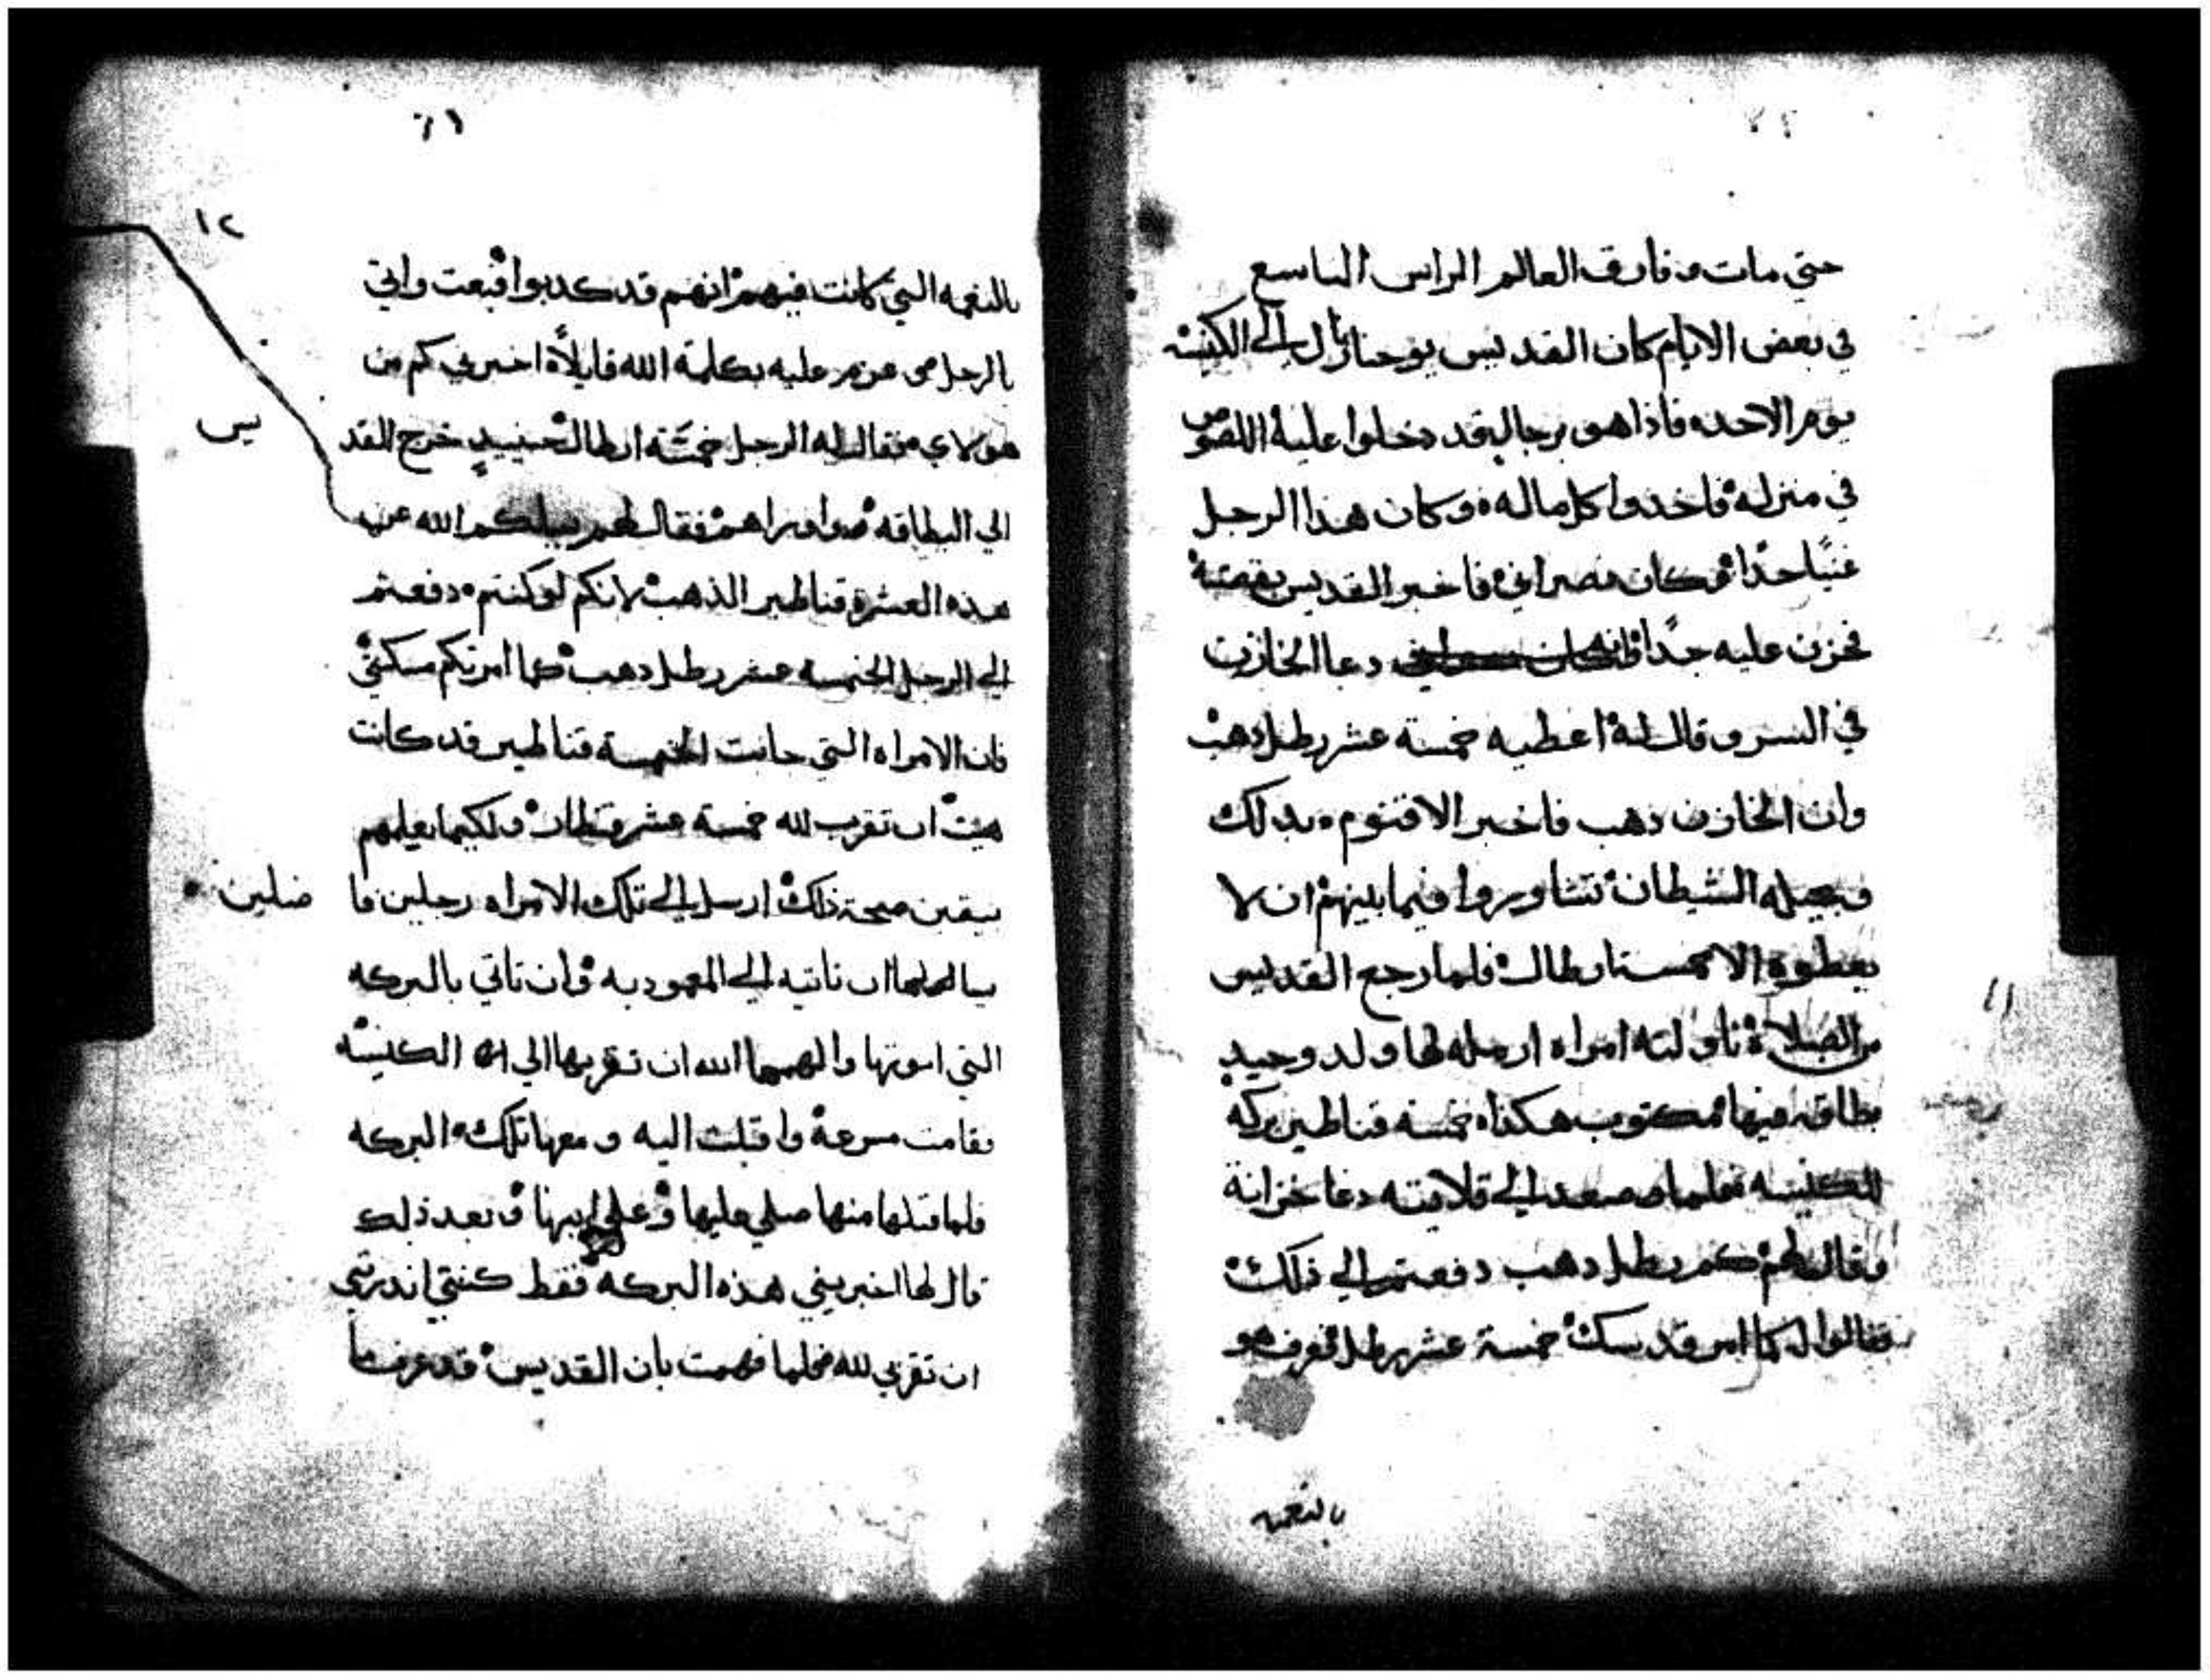 حتي مات وفارق العالم الراس التاسع
في بعض الايام كان القديس يوحنا نازل الي الكنيسه
يوم الاحد فاذا هو برجال قد دخلوا عليه اللصوص
في منزله فاخدوا كل ماله وكان هذا الرجل
غنيا جدًا وكان نصراني فاخبر القديس بقصته
فحزن عليه جدًا دعا الخازن
في السر وقال له اعطيه خمسة عشر رطل دهب
وان الخازن دهب فاخبر الاقنوم بدلك
الشيطان تشاوروا فيما بينهم ان لا
يعطوه الا خمستارطال فلما رجع القديس
من الصلاة ناولته امراه ارمله لها ولد وحيد
بطاقه فيها مكتوب هكذا خمسة قناطير بركه
للكنيسه فلما صعد الي قلايته دعا خزانه
وقال لهم كم رطل دهب دفعتم الي ذلك
فقالوا له كما امر قدسك خمسة عشر رطل فعرف هو
بالنعمه
٦١
١٢
بالنعمه التي كانت فيهم انهم قد كدبوا فبعت واتي
بالرجل عزم عليه بكلمة الله قايلاً اخبرني كم من
هولاي فقال له الرجل خمسة ارطال حينيدٍ خرج القد
يس
الي البطاقه واوراهم فقال لهم يسلكم الله عن
هذه العشرة قناطير الذهب لانكم لو كنتم دفعتم
الي الرجل الخمسة عشر رطل دهب كما امرتكم
فان الامراه التي جابت الخمسة قناطير قد كانت
ان تقرب لله خمسة عشر قنطار ولكيما يعلمهم
بيقين صحة ذلك ارسل الي تلك الامراه رجلين فا
ضلين
ان تاتيه الي المعموديه وان تاتي بالبركه
التي والهمها الله ان تقربها الي الكنيسه
فقامت مسرعة واقبلت اليه ومعها تلك البركه
فلما قبلها منها صلي عليها وعلي ابنها وبعد ذلك
قال لها اخبريني هذه البركه فقط كنتي اندرتي
ان تقربي لله فلما فهمت بان القديس قد عرف ما